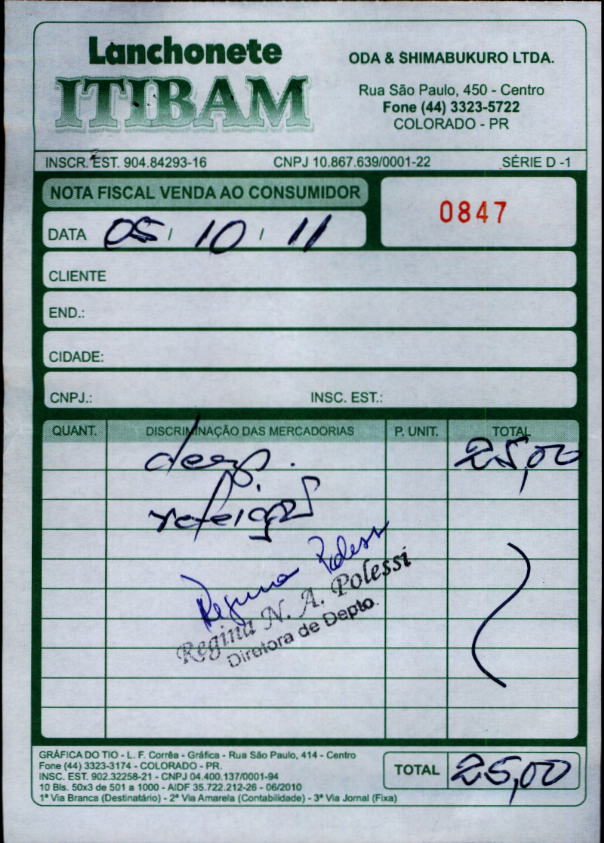 Lanchonete
ITIBAM
ODA & SHIMABUKURO LTDA.
Rua São Paulo, 450 - Centro
Fone (44) 3323-5722
COLORADO - PR
INSCR. EST. 904.84293-16 CNPJ 10.867.639/0001-22 SÉRIE D -1
NOTA FISCAL VENDA AO CONSUMIDOR
0847
DATA 05 / 10 / 11
CLIENTE
END.:
CIDADE:
CNPJ.: INSC. EST.:
QUANT. DISCRIMINAÇÃO DAS MERCADORIAS P. UNIT. TOTAL
desp. 25,00
refeições
Regina Polessi
Regina N. A. Polessi
Diretora de Depto.
GRÁFICA DO TIO - L. F. Corrêa - Gráfica - Rua São Paulo, 414 - Centro
Fone (44) 3323-3174 - COLORADO - PR.
INSC. EST. 902.32258-21 - CNPJ 04.400.137/0001-94
10 Bls. 50x3 de 501 a 1000 - AIDF 35.722.212-26 - 06/2010
1ª Via Branca (Destinatário) - 2ª Via Amarela (Contabilidade) - 3ª Via Jornal (Fixa)
TOTAL 25,00